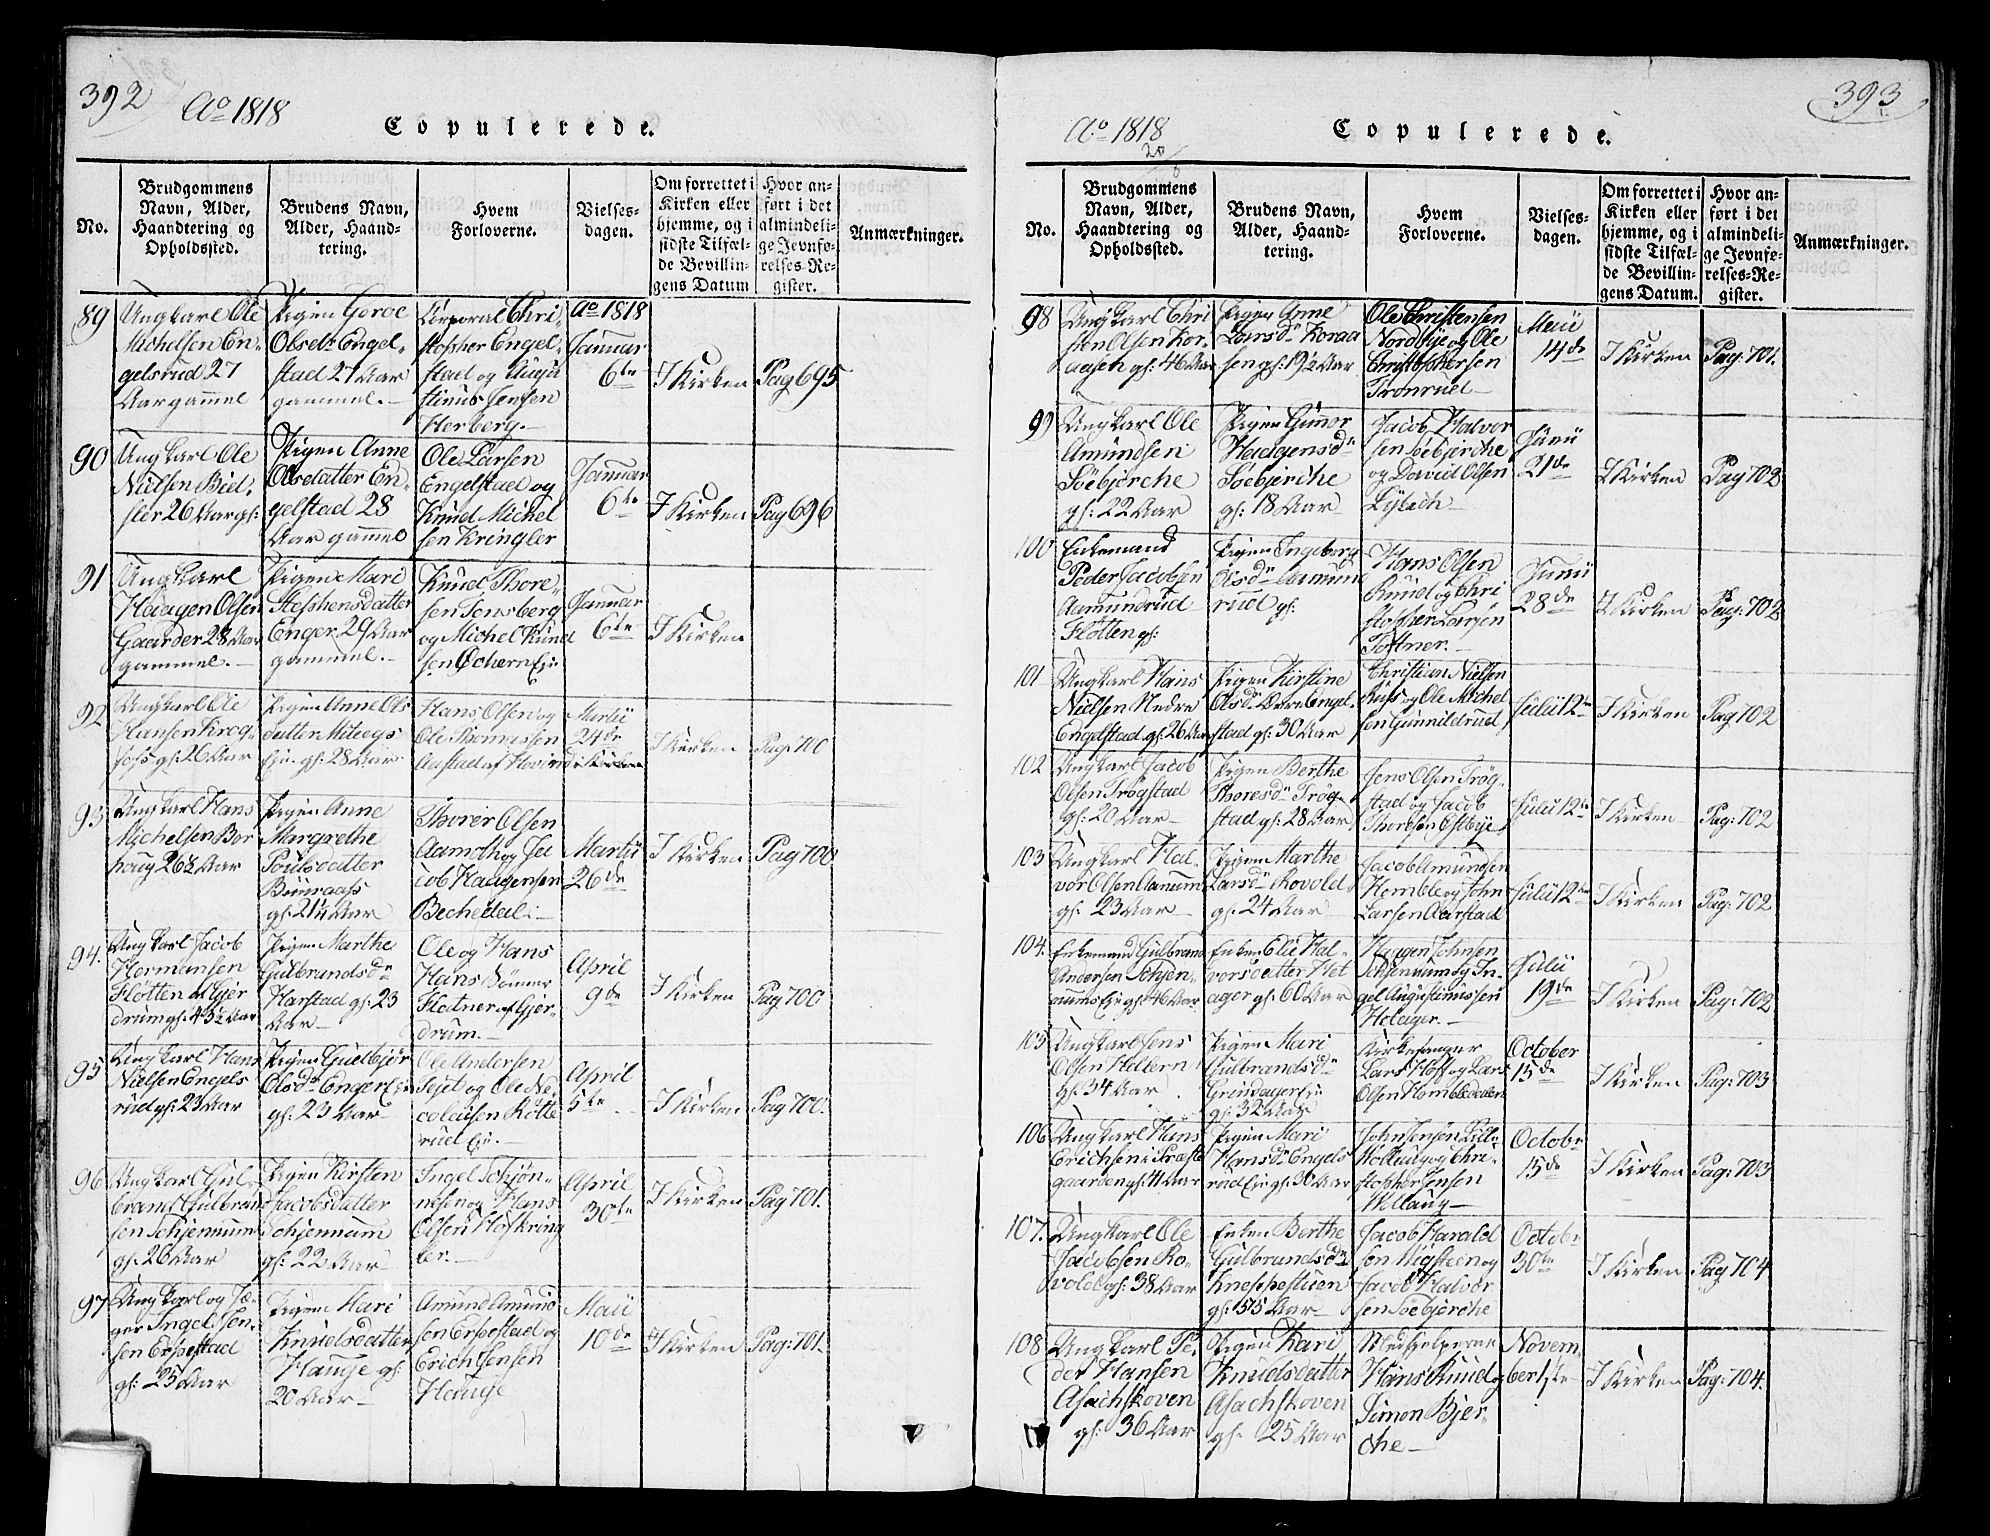 392
Ao 1818
Copulerede.
No.
Brudgommens Navn, Alder, Haandtering og Opholdssted.
Brudens Navn, Alder, Haandtering.
Hvem Forloverne.
Vielsesdagen.
Om forrettet i Kirken eller hjemme, og i sidste Tilfælde Bevillingens Datum
Hvor anført i det almindelige Jevnførelses-Register.
Anmærkninger.
89
Ungkarl Ole
Michelsen En-
gelsrud 27
Aar gammel
Pigen Goroe
Olsdr Engel-
stad 27 Aar
gammel.
Corporal Chri-
stopher Engel-
stad og Augu
stinus Jensen
Herberg.
Ao 1818
Januar
6te
I Kirken
Pag 695
90
Ungkarl Ole
Nielsen
26 Aar gl:
Pigen Anne
Olsdatter En-
gelstad 28
Aar gammel
Ole Larsen
Engelstad og
Knud Michel
sen Kringler
Januar
6te
I Kirken
Pag 696
91
Ungkarl
Haagen Olsen
Gaarder 28 Aar
gammel.
Pigen Mari
Stephensdatter
Enger 29 Aar
gammel.
Knud Thore-
sen Tonsberg
og Michel Knud
sen Ochern Eje
Januar
6te
I Kirken
92
Ungkarl Ole
Hansen Krog-
foss gl: 26 Aar
Pigen Anne Ols
datter
Eje gl: 28 Aar
Hans Olsen og
Ole Thomassen
Aastad af Hovind
Martii
24de
I Kirken
Pag: 700
93
Ungkarl Hans
Michelsen Bor
houg 26½ Aar
Pigen Anne
Margrethe
Poulsdatter
gl: 21¼ Aar
Thorer Olsen
Aamoth og Ja
cob Haagensen
Bechedal
Martii
26de
I Kirken
Pag 700
94.
Ungkarl Jacob
Hermansen
Fløtten af Gjer
drum gl: 45½ Aar
Pigen Marthe
Gulbrandsdr
Harstad gl: 23
Aar
Ole og Hans
Hans Sønner
Flatner af Gjer-
drum.
April
9de
I Kirken
Pag 700
95
Ungkarl Hans
Nielsen Engels
rud gl: 23 Aar
Pigen Guelbjør
Olsdr Enger Eje
gl: 23 Aar
Ole Andersen
Tejet og Ole Ni-
colaisen Rotte
rud Eje.
April
5te
I Kirken
Pag 700.
96
Ungkarl Gul-
brand Gulbrand
sen Schjennum
gl: 26 Aar
Pigen Kirsten
Jacobsdatter
Schjennum
gl: 22 Aar
Ingel Schjøn-
nesen og Hans
Olsen Høfkring
ler.
April
30te
I Kirken
Pag 701.
97
Ungkarl og Jæ-
ger Ingel Jen-
sen Erpestad
gl: 25 Aar
Pigen Mari
Knudsdatter
Hauge gl:
20 Aar
Amund Amund
sen Erpestad og
Erich Jensen
Hauge
Maii
10de
I Kirken
Pag: 701.
393
Ao 1818
Copulerede.
No.
Brudgommens Navn, Alder, Haandtering og Opholdssted.
Brudens Navn, Alder, Haandtering.
Hvem Forloverne.
Vielsesdagen.
Om forrettet i Kirken eller hjemme, og i sidste Tilfælde Bevillingens Datum.
Hvor anført i det almindelige Jevnførelses-Register.
Anmærkninger.
98
Ungkarl Chri
sten Olsen Kor-
aasen gl: 46 Aar
Pigen Anne
Larsdr Koraa
sen gl: 19½ Aar
Ole Christensen
Nordbye og Ole
Christophersen
Tronrud
Maii
14de
I Kirken
Pag: 701.
99
Ungkarl Ole
Amundsen
Søebjerche
gl: 22 Aar
Pigen Gunor
Haagensdr
Søebjerche
gl: 18 Aar
Jacob Halvor
sen Søebjerche
og David Olsen
Junii
21de
I Kirken
Pag 702
100
Enkemand
Peder Jacobsen
Aamundrud
Fløtten gl:
Pigen Ingeborg
Olsdr Aamund
rud gl:
Hans Olsen
Ruud og Chri
stopher Larsen
Tottner.
Junii
28de
I Kirken
Pag: 702
101
Ungkarl Hans
Nielsen Nedre
Engelstad gl: 26 Aar
Pigen Kirstine
Olsdr Øvre Engel-
stad gl: 30 Aar
Christian Nielsen
Russ og Ole Michel
sen Gunnildrud
Julii 12te
I Kirken
Pag 702
102
Ungkarl Jacob
Olsen Trøgstad
gl: 20 Aar
Pigen Berthe
Thoresdr Trøg-
stad gl: 28 Aar
Jens Olsen Trøg-
stad og Jacob
Thoresen Estbye
Julii 12te
I Kirken
Pag: 702
103
Ungkarl Hal-
vor Olsen Aanum
gl: 23 Aar
Pigen Marthe
Larsdr Rovold
gl: 24 Aar
Jacob Amundsen
Homble og John
Larsen Aarstad
Julii 12te
I Kirken
Pag: 702
104.
Enkemand Gulbrand
Andersen Schjen-
nums Eje gl: 46 Aar
Enken Elie Hal-
vorsdatter Hol
ager gl: 60 Aar
Haagen Johnsen
Schjennum og In-
gel Augustinussen
Holager.
Julii
19de
I Kirken
Pag: 702
105
Ungkarl Jens
Olsen Hellern
gl: 34 Aar
Pigen Mari
Gulbrandsdr
Grindager Eje
gl: 32 Aar
Kirkesanger
Lars Hoff og Lars
Olsen Hombledalen
October
15de
I Kirken
Pag: 703
106
Ungkarl Hans
Erichsen i Præste
gaarden gl: 41 Aar
Pigen Mari
Hansdr Engels
rud Eje gl: 30 Aar
John Jensen Lille
Møllaug og Chri-
stopher Jensen
Møllaug
Octobr
15de
I Kirken
Pag: 703
107.
Ungkarl Ole
Jacobsen Ro-
vold gl: 38 Aar
Enken Berthe
Gulbrandsdr
Kneppestuen
gl: 55 Aar
Jacob Harald
sen Nigsteen og
Jacob Halvor
sen Søebjerche
Octobr
30te
I Kirken
Pag 704
108
Ungkarl Pe-
der Hansen
Asachskoven
gl: 36 Aar
Pigen Kari
Knudsdatter
Asachskoven
gl: 25 Aar
Medhjelperne
Hans Ruud og
Simon Bjer-
che
Novem-
ber 1ste
I Kirken
Pag: 704.